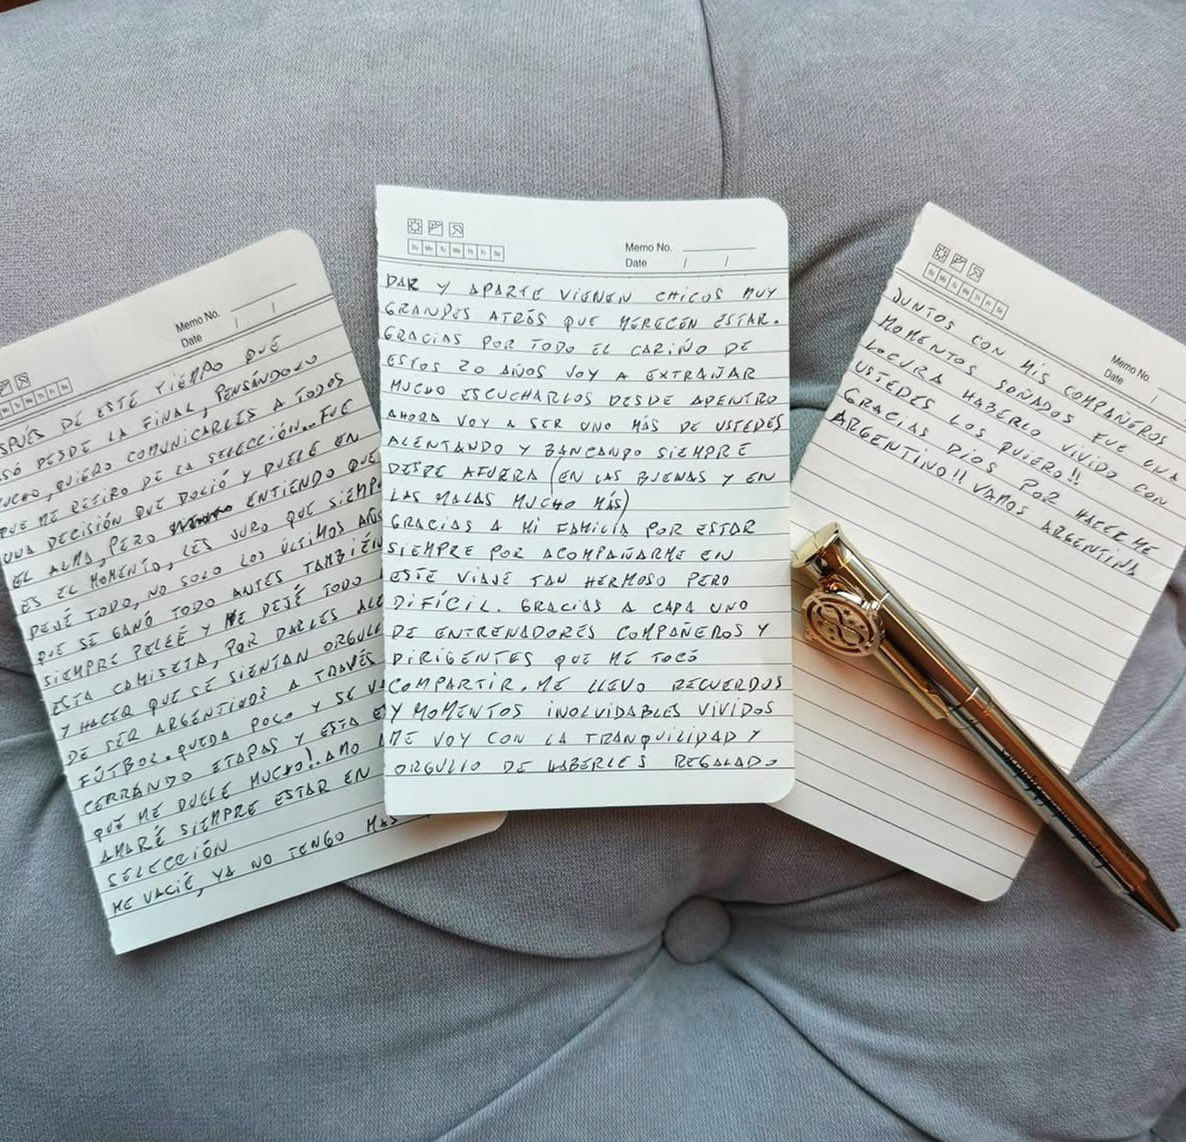 Memo No.
Date / /
SPUÉS DE ESTE TIEMPO QUE
SÓ DESDE LA FINAL, PENSÁNDOLO
UCHO, QUIERO COMUNICARLES A TODOS
QUE ME RETIRO DE LA SELECCIÓN... FUE
UNA DECISIÓN QUE DOLIÓ Y DUELE EN
EL ALMA, PERO ENTIENDO QUE
ES EL MOMENTO, LES JURO QUE SIEMP
DEJÉ TODO, NO SOLO LOS ÚLTIMOS AÑOS
QUE SE GANÓ TODO ANTES TAMBIÉN
SIEMPRE PELEÉ Y ME DEJÉ TODO
ESTA CAMISETA, POR DARLES ALE
Y HACER QUE SE SIENTAN ORGULL
DE SER ARGENTINOS A TRAVÉS
FÚTBOL. QUEDA POCO Y SE VA
CERRANDO ETAPAS Y ESTA E
QUE ME DUELE MUCHO!. AMO
AMARÉ SIEMPRE ESTAR EN
SELECCIÓN
ME VACIÉ, YA NO TENGO MAS
Su Mo Tu We Th Fr Sa
Memo No.
Date / /
DAR Y APARTE VIENEN CHICOS MUY
GRANDES ATRÁS QUE MERECEN ESTAR.
GRACIAS POR TODO EL CARIÑO DE
ESTOS 20 AÑOS VOY A EXTRAÑAR
MUCHO ESCUCHARLOS DESDE ADENTRO
AHORA VOY A SER UNO MÁS DE USTEDES
ALENTANDO Y BANCANDO SIEMPRE
DESDE AFUERA (EN LAS BUENAS Y EN
LAS MALAS MUCHO MÁS)
GRACIAS A MI FAMILIA POR ESTAR
SIEMPRE POR ACOMPAÑARME EN
ESTE VIAJE TAN HERMOSO PERO
DIFÍCIL. GRACIAS A CADA UNO
DE ENTRENADORES COMPAÑEROS Y
DIRIGENTES QUE ME TOCÓ
COMPARTIR. ME LLEVO RECUERDOS
Y MOMENTOS INOLVIDABLES VIVIDOS
ME VOY CON LA TRANQUILIDAD Y
ORGULLO DE HABERLES REGALADO
Su Mo Tu We Th Fr Sa
Memo No.
Date /
JUNTOS CON MIS COMPAÑEROS
MOMENTOS SOÑADOS FUE UNA
LOCURA HABERLO VIVIDO CON
USTEDES LOS QUIERO!!
GRACIAS DIOS POR HACERME
ARGENTINO!! VAMOS ARGENTINA